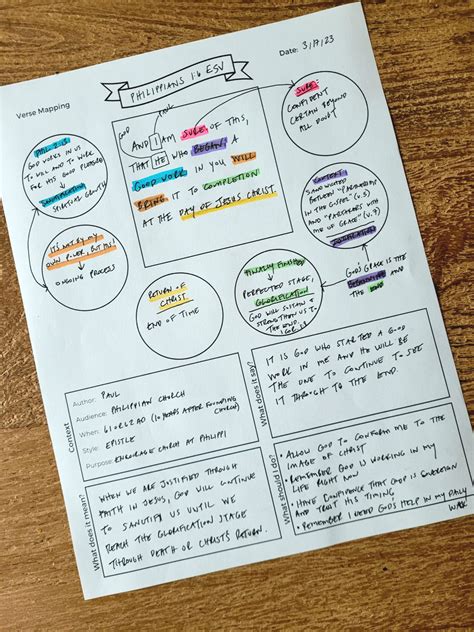 Verse Mapping
Date: 3/17/23
PHILIPPIANS 1:6 ESV
GOD
PAUL
AND I AM SURE OF THIS,
THAT HE WHO BEGAN A
GOOD WORK IN YOU WILL
BRING IT TO COMPLETION
AT THE DAY OF JESUS CHRIST.
SURE:
CONFIDENT
CERTAIN BEYOND
ALL DOUBT
PHIL 2:13
GOD WORKS IN US
TO WILL AND TO WORK
FOR HIS GOOD PLEASURE
SANCTIFICATION
SPIRITUAL GROWTH
CONTEXT:
SANDWICHED
BETWEEN "PARTNERSHIP
IN THE GOSPEL" (V.5)
AND "PARTAKERS WITH
ME OF GRACE" (V.7)
GOD'S GRACE IS THE
BEGINNING AND
THE END
IT'S NOT BY MY
OWN POWER, BUT HIS!
ONGOING PROCESS
RETURN OF
CHRIST
END OF TIME
FINALLY FINISHED
PERFECTED STAGE,
GLORIFICATION
GOD WILL SUSTAIN &
STRENGTHEN US TO
THE END
1 COR 1:8
Context
Author: PAUL
Audience: PHILIPPIAN CHURCH
When: 61 OR 62 AD (10 YEARS AFTER FOUNDING
CHURCH)
Style: EPISTLE
Purpose: ENCOURAGE CHURCH AT PHILIPPI
What does it say?
IT IS GOD WHO STARTED A GOOD
WORK IN ME AND HE WILL BE
THE ONE TO CONTINUE TO SEE
IT THROUGH TO THE END.
What does it mean?
WHEN WE ARE JUSTIFIED THROUGH
FAITH IN JESUS, GOD WILL CONTINUE
TO SANCTIFY US UNTIL WE
REACH THE GLORIFICATION STAGE
THROUGH DEATH OR CHRIST'S RETURN.
What should I do?
• ALLOW GOD TO CONFORM ME TO THE
IMAGE OF CHRIST
• REMEMBER GOD IS WORKING IN MY
LIFE RIGHT NOW
• HAVE CONFIDENCE THAT GOD IS SOVEREIGN
AND TRUST HIS TIMING
• REMEMBER I NEED GOD'S HELP IN MY DAILY
WALK